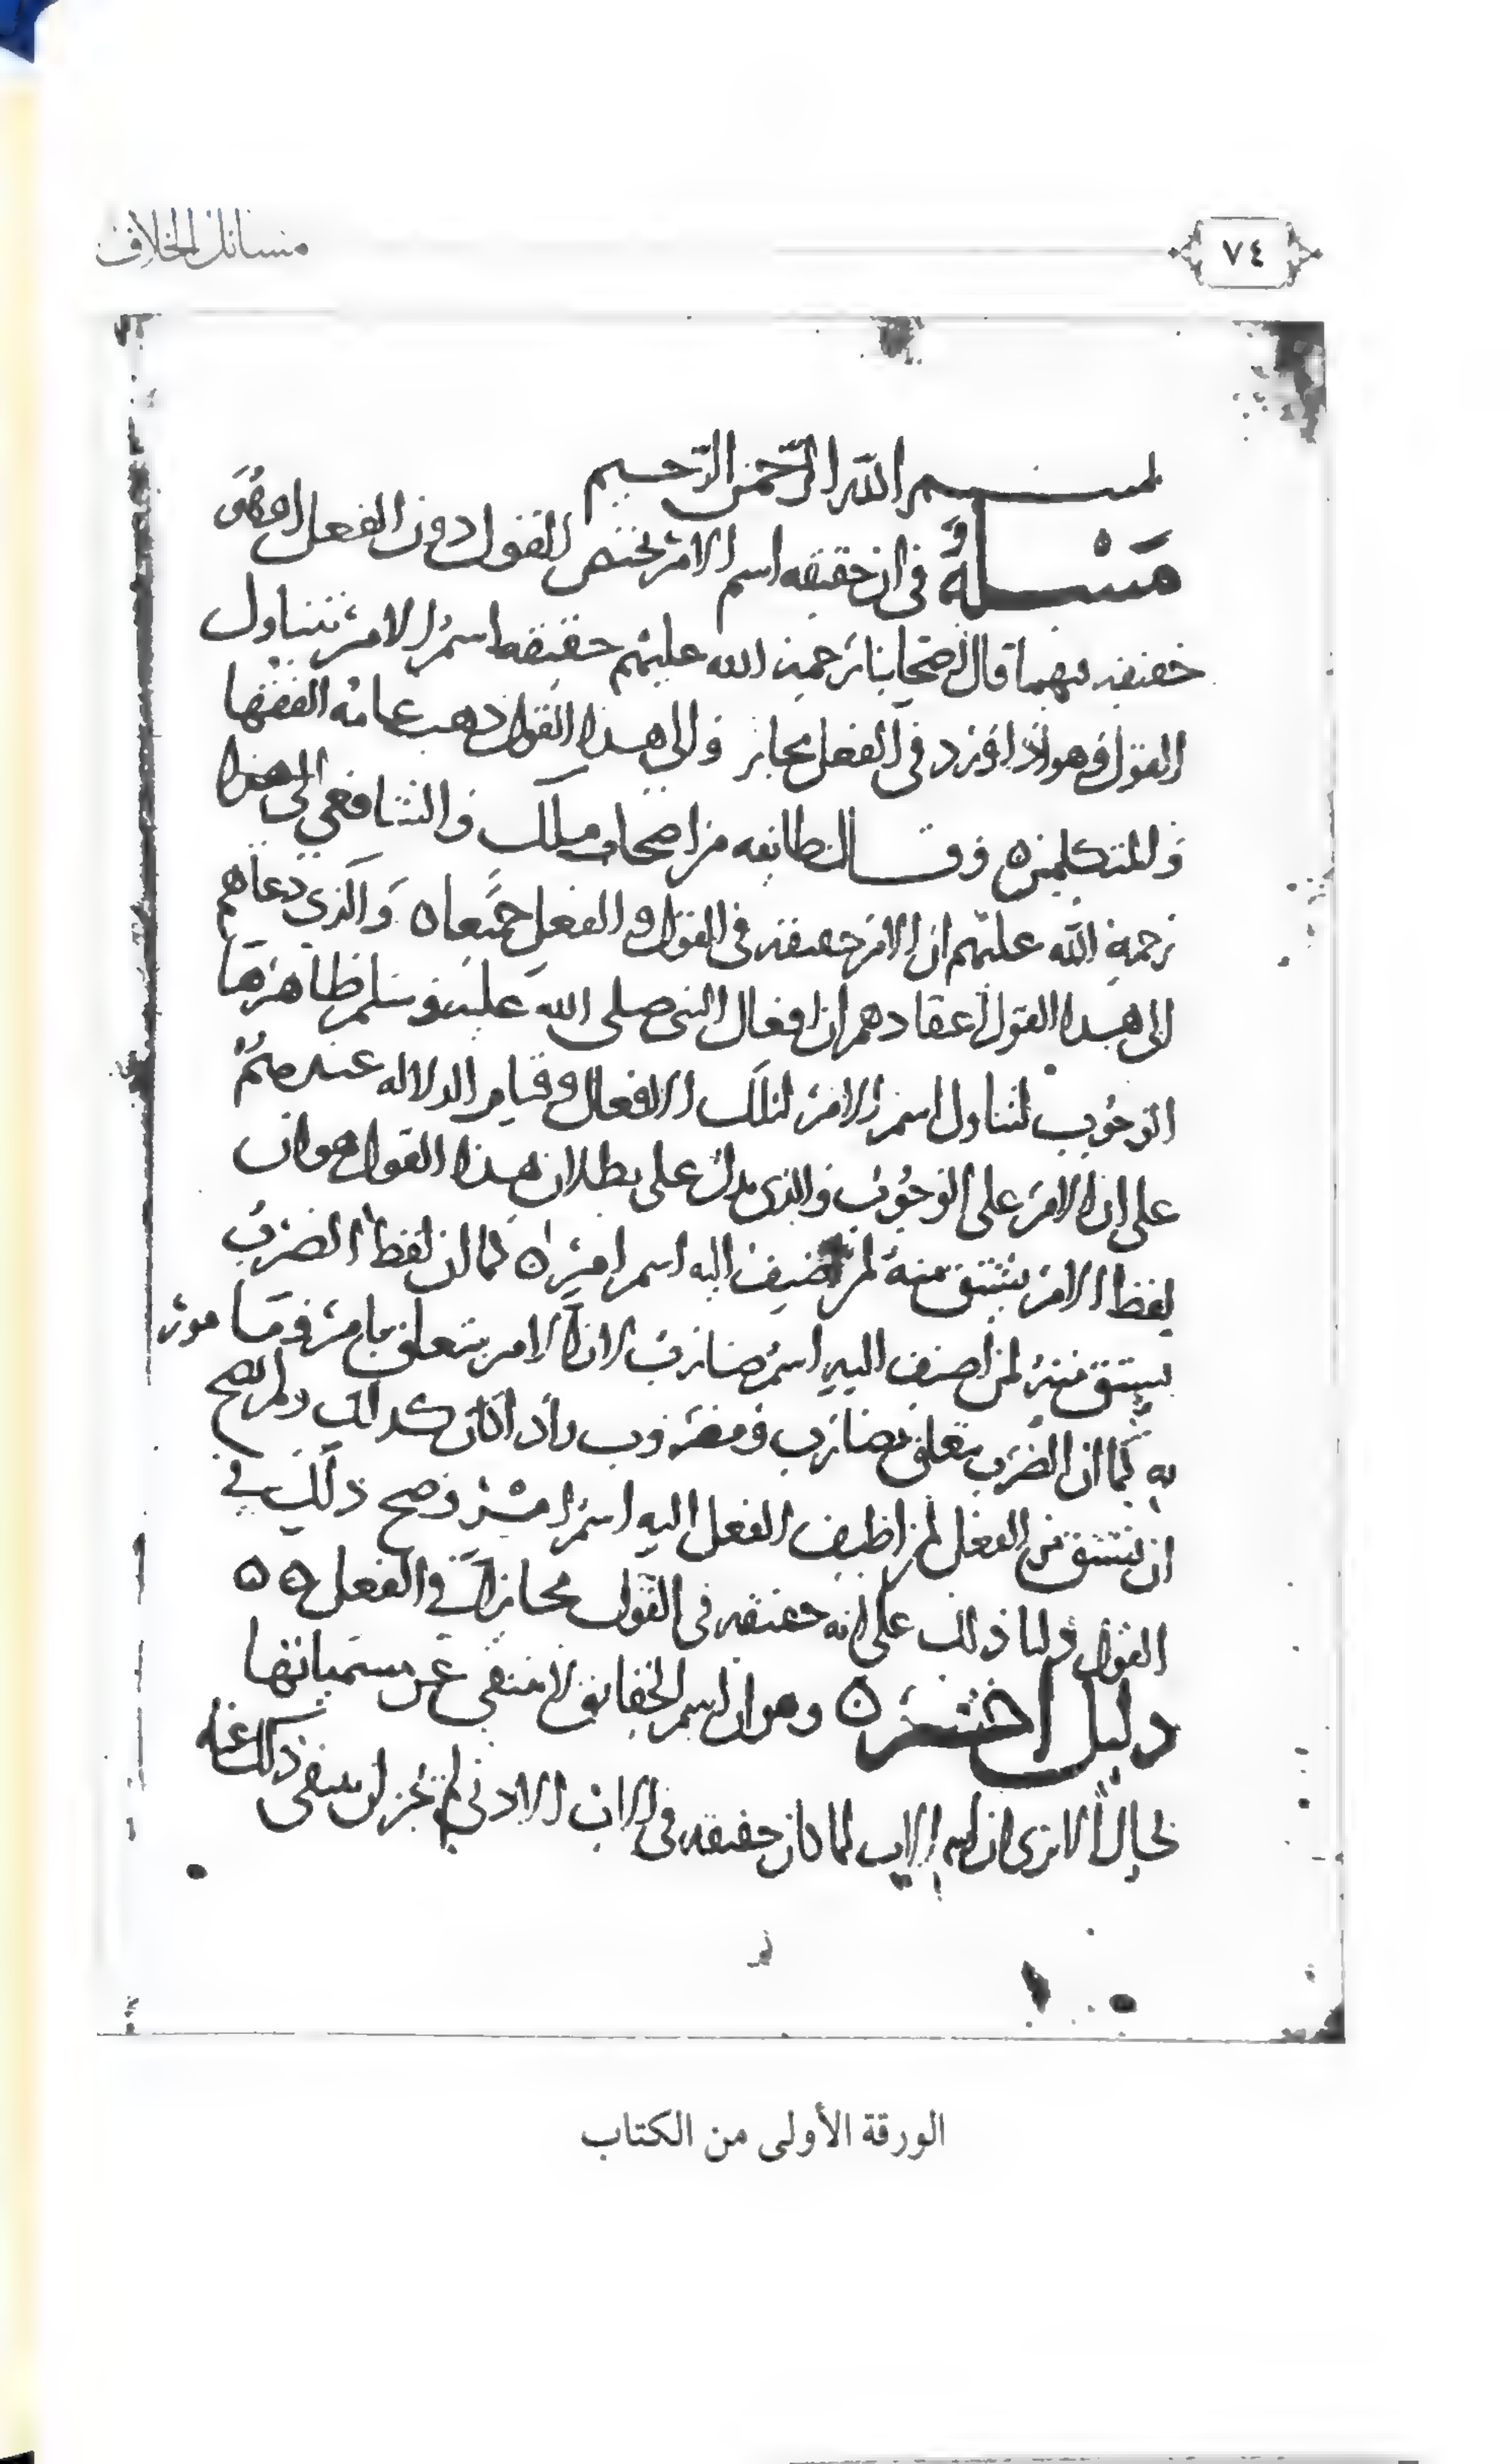 ٧٤
مسائل الخلاف
بسم الله الرحمن الرحيم
مسلة في ان حقيقه اسم الامر يختص القول دون الفعل ام هى
حقيقه فيهما قال اصحابنا رحمة الله عليهم حقيقه اسم الامر تتناول
القول وهو اذا ورد في الفعل مجاز والى هذا القول ذهب عامه الفقها
والمتكلمين ه وقال طايفه من اصحاب ملك والشافعي الى هذا
رحمة الله عليهم ان الامر حقيقه في القول والفعل جميعا ه والذي دعاهم
الى هذا القول اعتقادهم ان افعال النبي صلى الله عليه وسلم ظاهرها
الوجوب لتناول اسم الامر لتلك الافعال وقيام الدلاله عندهم
على ان الامر على الوجوب والذي يدل على بطلان هذا القول هو ان
لفظ الامر يشتق منه لمن اضيف اليه اسم امر ه كما ان لفظ الضرب
يشتق منه لمن اضيف اليه اسم ضارب لان الامر يتعلق بامر ومامور
به كما ان الضرب يتعلق بضارب ومضروب واذا كان كذلك ولم يصح
ان يشتق من الفعل لمن اظيف الفعل اليه اسم امر وصح ذلك في
القول دلنا ذلك على انه حقيقه في القول مجازا في الفعل ه ه
دليل اخر ه وهو ان اسم الحقايق لا ينتفي عن مسمياتها
بحال الا ترى ان اسم الاب لما كان حقيقه في الاب الادنى لم يجز ان ينتفى ذلك عنه
الورقة الأولى من الكتاب